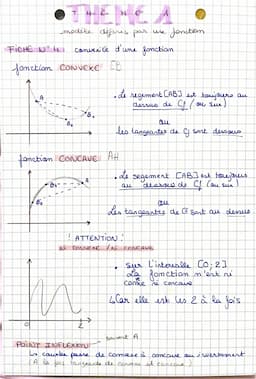 THEME 1
modèle défini par une fonction
FICHE N°4: convexité d'une fonction
fonction CONVEXE
• Le segment [AB] est toujours au
dessus de Cf (ou sur)
ou
les tangentes de Cf sont dessous
A
B₁
B₂
fonction CONCAVE
• Le segment [AB] est toujours
au dessous de Cf (ou sur)
ou
Les tangentes de Cf sont au dessus
! ATTENTION !
NI CONVEXE / NI CONCAVE
• sur l'intervalle [0;2]
La fonction n'est ni
convexe ni concave
↳ Car elle est les 2 à la fois
0
2
POINT INFLEXION
↳ courbe passe de convexe à concave ou inversement